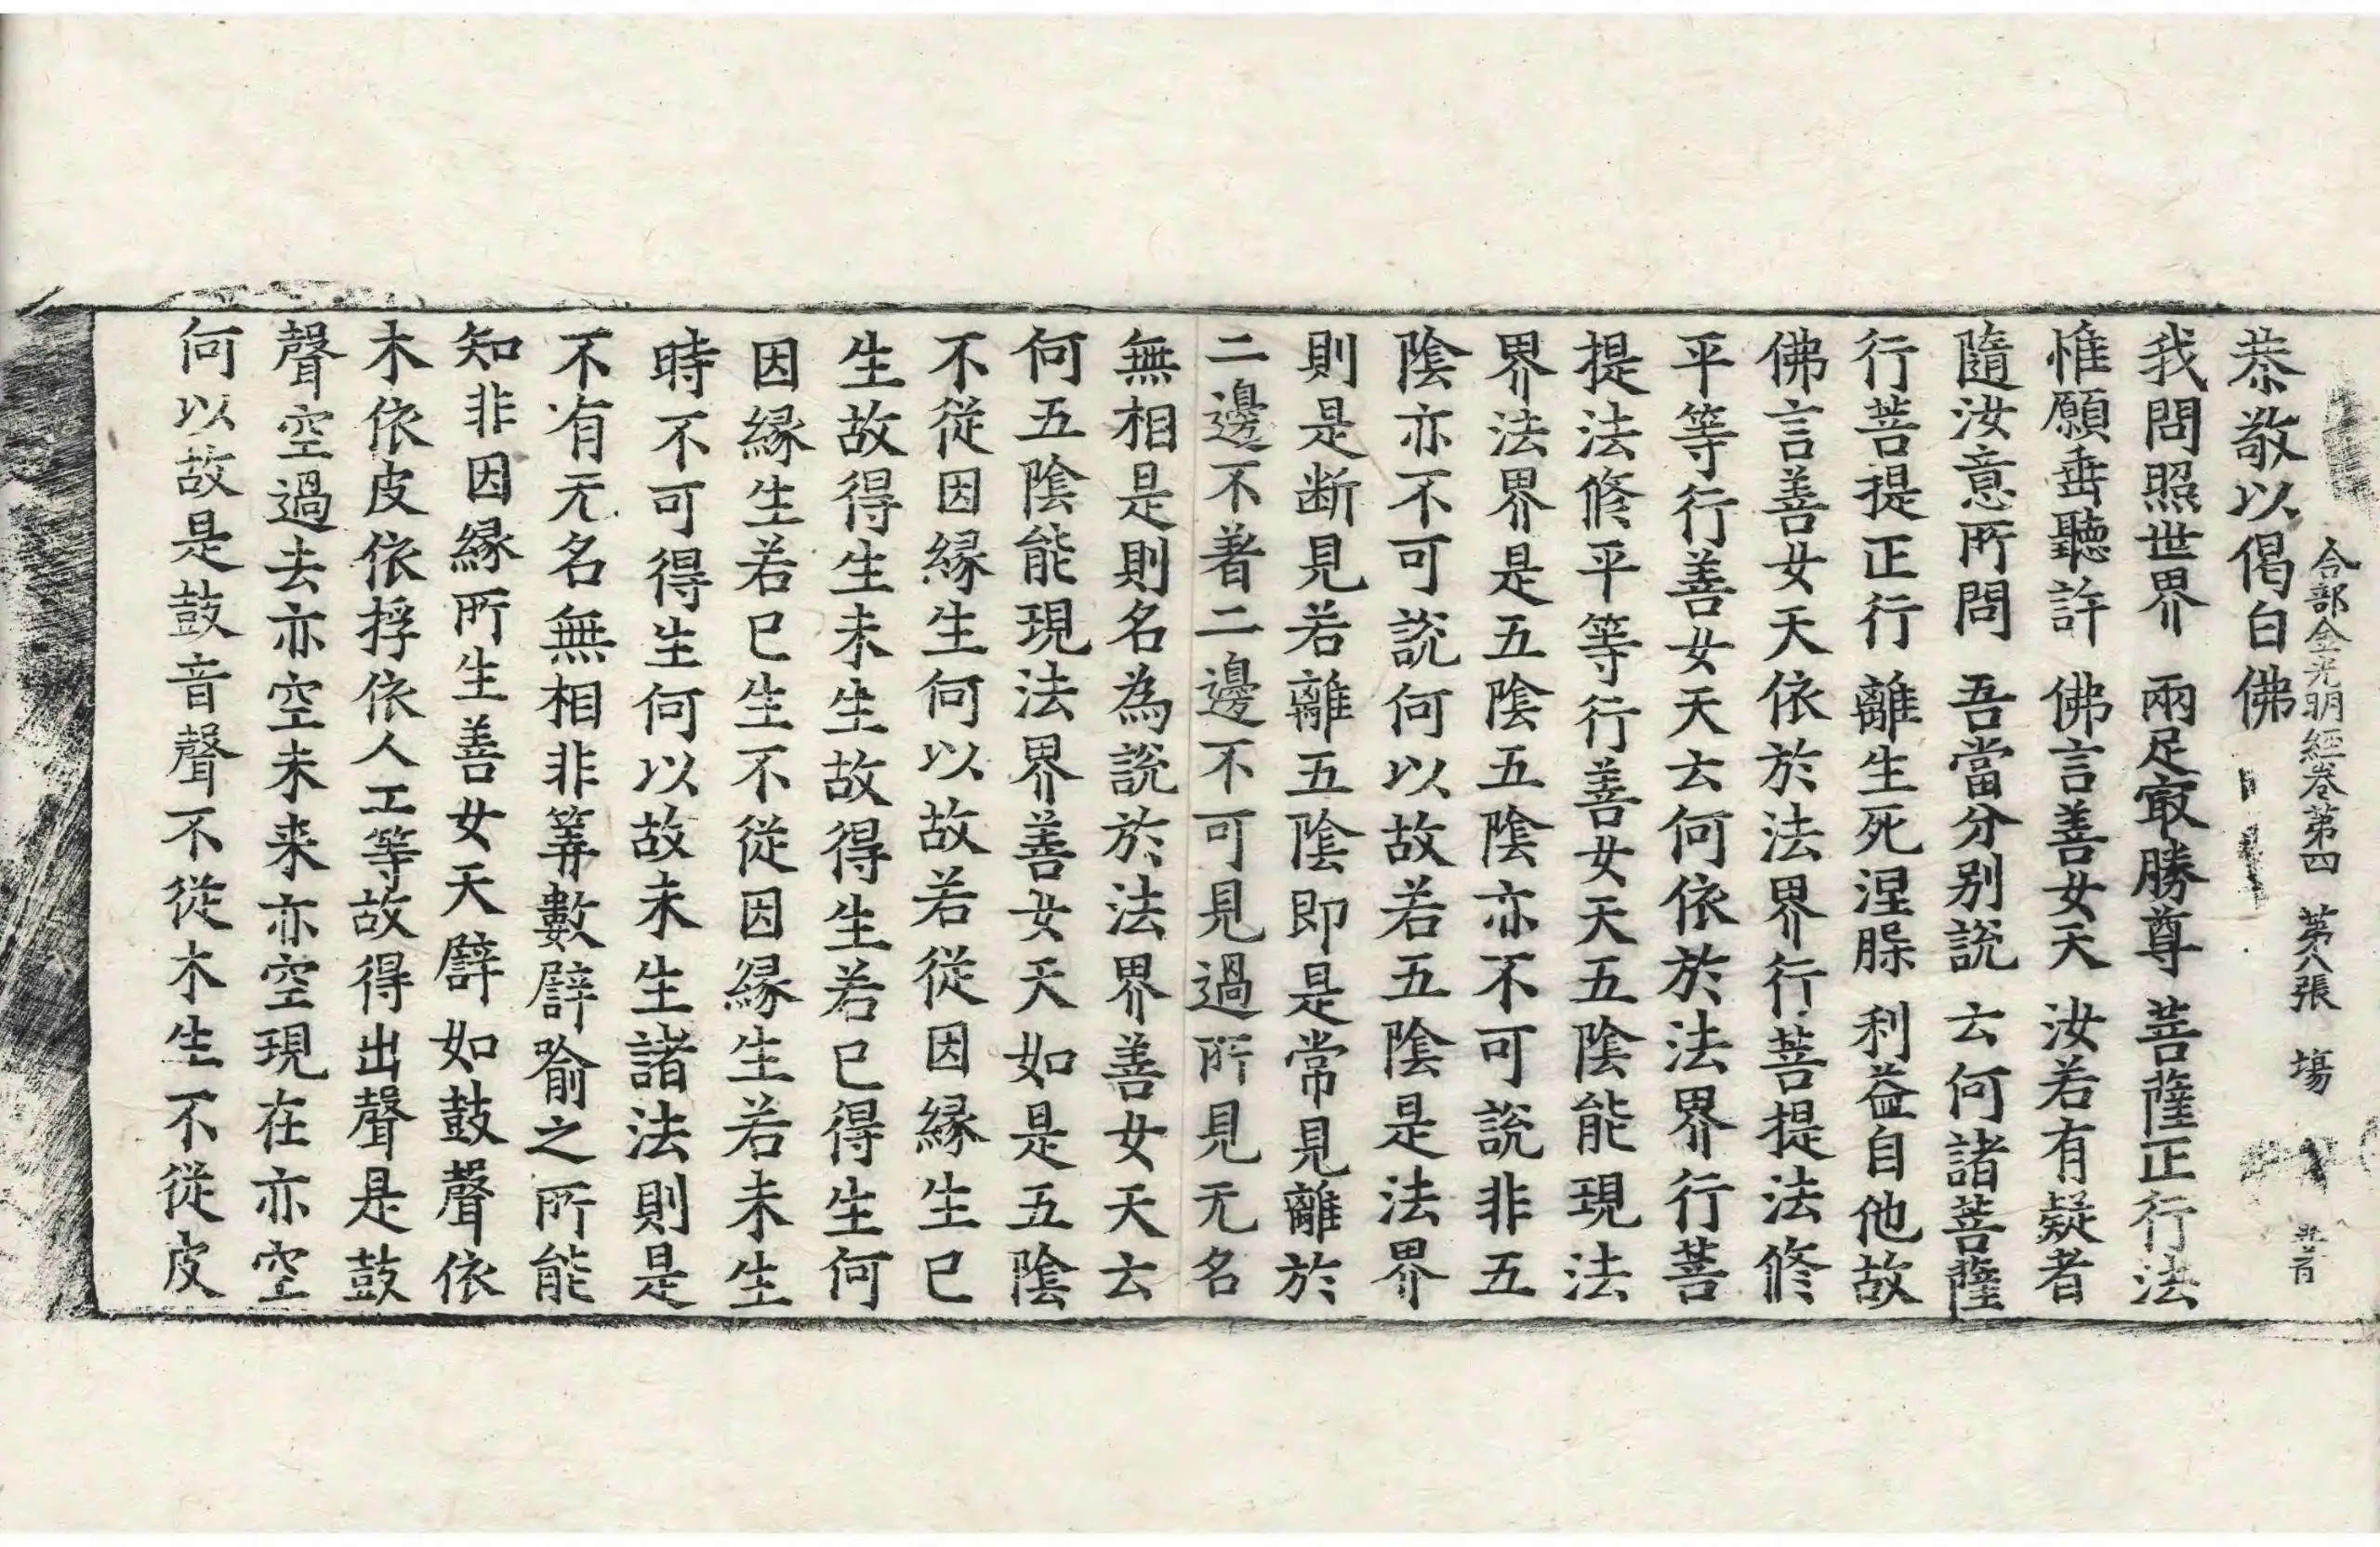 合部金光明經卷第四 第八張 塲
恭敬以偈白佛
我問照世界 兩足㝡勝尊 菩薩正行法
惟願垂聽許 佛言善女天 汝若有疑者
隨汝意所問 吾當分别說 云何諸菩薩
行菩提正行 離生死涅槃 利益自他故
佛言善女天依於法界行菩提法修
平等行善女天云何依於法界行菩
提法修平等行善女天五陰能現法
界法界是五陰五陰亦不可說非五
陰亦不可說何以故若五陰是法界
則是断見若離五陰即是常見離於
二邊不著二邊不可見過所見无名
無相是則名為說於法界善女天云
何五陰能現法界善女天如是五陰
不從因緣生何以故若從因緣生已
生故得生未生故得生若已得生何
因緣生若已生不從因緣生若未生
時不可得生何以故未生諸法則是
不有无名無相非筭數譬喻之所能
知非因緣所生善女天譬如鼓聲依
木依皮依桴依人工等故得出聲是鼓
聲空過去亦空未来亦空現在亦空
何以故是鼓音聲不從木生不從皮